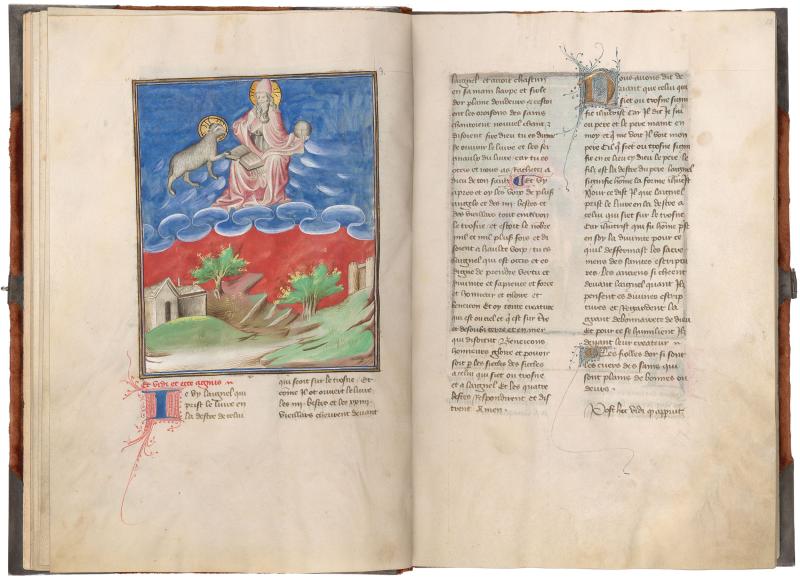 Et vidi et ecce agnus
Je vy laignel qui
prist le livre en
la destre de celui
qui sont sur le trosne. Et
come il ot ouvert le livre
les iiii bestes et les xxiiii
vieillars cheurent devant
laignel et avoit chascun
en sa main harpe et fiole
dor plaine dondeurs et cestoi
ent les oroisons des sains
chantoient nouvel chant et
disoient sire dieu tu es digne
de ouvrir le livre et les sei
gnaulx du livre car tu es
occis et nous as rachetes a
dieu de ton sanc Et vy
apres et oy les voix de plus
angels et des iiii bestes et
des vieillars tout environ
le trosne et estoit le nobre
mil et mil plus fois et di
soient a haulte voix tu es
laignel qui est occis et es
digne de prendre vertu et
divinite et sapience et force
et honneur et gloire et
beneicon Et oy toute creature
qui est ou ciel et qui est sur tre
et desoubz terre et en mer
qui disoient beneicons
honneurs gloire et pouoir
soit par les siecles des siecles
a celui qui siet ou trosne
et a laignel Et les quatre
bestes respondirent et dis
trent Amen
Nous avons dit de
devant que celui qui
siet ou trosne signi
fie ihucrist car Il dit Je sui
ou pere et le pere maint en
moy et qui me voit Il voit mon
pere Cil qui siet ou trosne signi
fie en ce lieu cy dieu le pere le
filz est la destre du pere laignel
signifie home la forme ihucrist
Pour ce dist Il que laignel
prist le livre en la destre a
celui qui siet sur le trosne
Car ihucrist qui fu home prist
en soy la divinite pour ce
quil deffermast les sacre
mens des saintes escriptu
res les anciens si cheent
devant laignel quant Ilz
pensent es divines escrip
tures et regardent la
grant debonnairete de dieu
Et pour ce se humilient Ilz
devant leur createur
Les fiolles dor si sont
les cuers des sains qui
sont plains de bonnes ou
deurs
Post hec vidi et apparuit